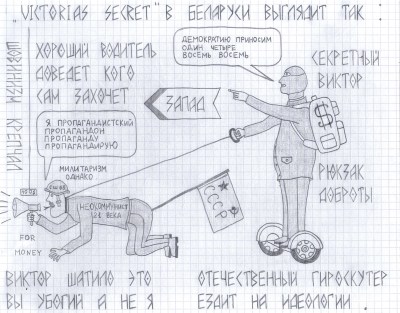 „VICTORIAS SECRET" В БЕЛАРУСИ ВЫГЛЯДИТ ТАК :
ШОВИНИЗМ КРЕПЧАЛ
ХОРОШИЙ ВОДИТЕЛЬ
ДОВЕДЕТ КОГО
САМ ЗАХОЧЕТ
ДЕМОКРАТИЮ ПРИНОСИМ
ОДИН ЧЕТЫРЕ
ВОСЕМЬ ВОСЕМЬ
СЕКРЕТНЫЙ
ВИКТОР
ЗАПАД
Я ПРОПАГАНДИСТСКИЙ
ПРОПАГАНДОН
ПРОПАГАНДУ
ПРОПАГАНДИРУЮ
МИЛИТАРИЗМ
ОДНАКО
$
РЮКЗАК
ДОБРОТЫ
НЕОКОММУНИСТ
21 ВЕКА
СССР
FOR
MONEY
ВИКТОР ШАТИЛО ЭТО
ВЫ УБОГИЙ А НЕ Я
ОТЕЧЕСТВЕННЫЙ ГИРОСКУТЕР
ЕЗДИТ НА ИДЕОЛОГИИ .